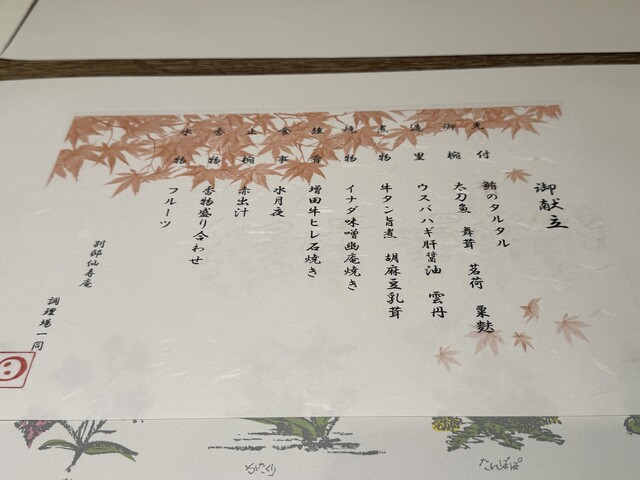 御献立
先付 鮪のタルタル
御椀 太刀魚 舞茸 茗荷 粟麩
造里 ウスバハギ肝醤油 雲丹
煮物 牛タン旨煮 胡麻豆乳茸
焼物 イナダ味噌幽庵焼き
強肴 増田牛ヒレ石焼き
食事 水月夜
止椀 赤出汁
香物 香物盛り合わせ
水物 フルーツ
別邸仙寿庵
調理場一同
かたくり
たんぽぽ